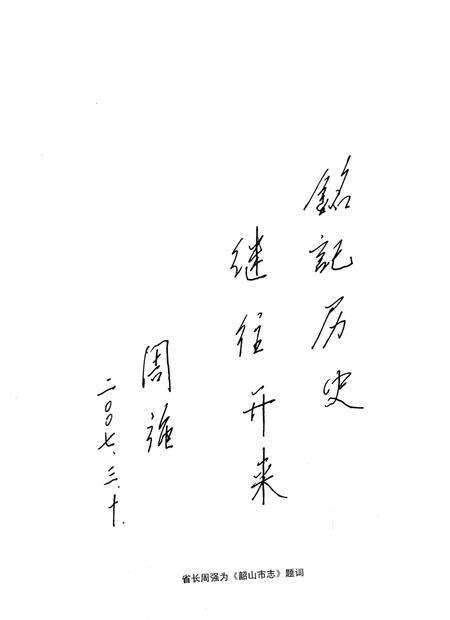 銘記历史
继往开来
周强
二〇〇七.三.十.
省长周强为《韶山市志》题词